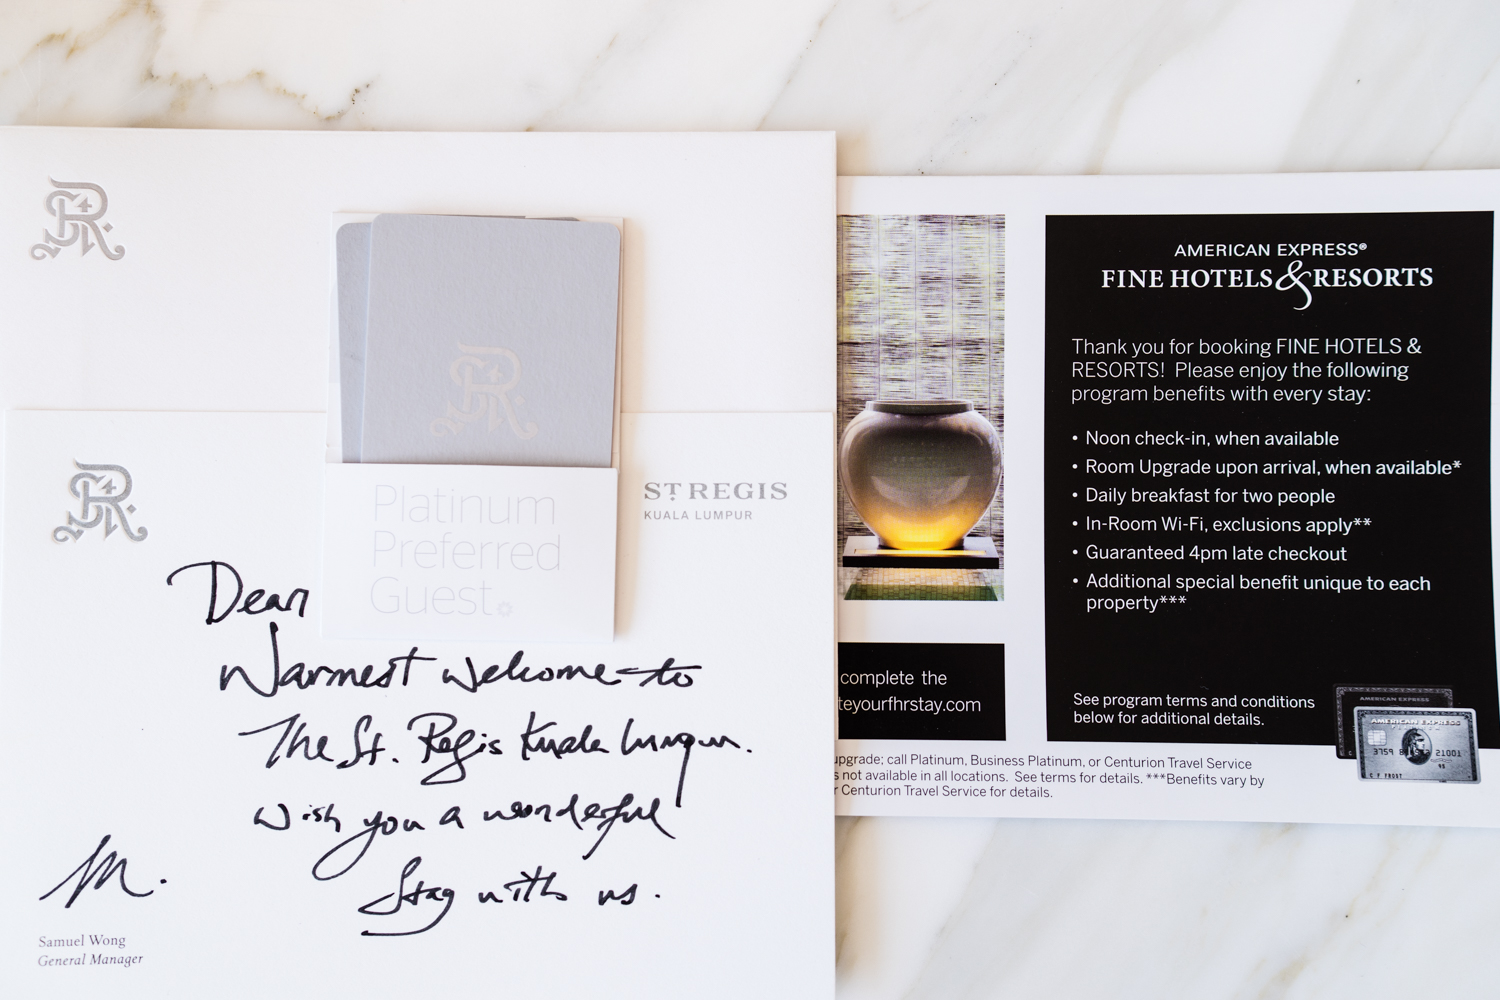 ST REGIS
KUALA LUMPUR
Platinum
Preferred
Guest
Dear
Warmest welcome to
The St. Regis Kuala Lumpur.
Wish you a wonderful
Stay with us.
Samuel Wong
General Manager
AMERICAN EXPRESS®
FINE HOTELS & RESORTS
Thank you for booking FINE HOTELS &
RESORTS! Please enjoy the following
program benefits with every stay:
• Noon check-in, when available
• Room Upgrade upon arrival, when available*
• Daily breakfast for two people
• In-Room Wi-Fi, exclusions apply**
• Guaranteed 4pm late checkout
• Additional special benefit unique to each
property***
See program terms and conditions
below for additional details.
AMERICAN EXPRESS
AMERICAN EXPRESS
3759 21001
95
C F FROST
complete the
teyourfhrstay.com
upgrade; call Platinum, Business Platinum, or Centurion Travel Service
s not available in all locations. See terms for details. ***Benefits vary by
r Centurion Travel Service for details.